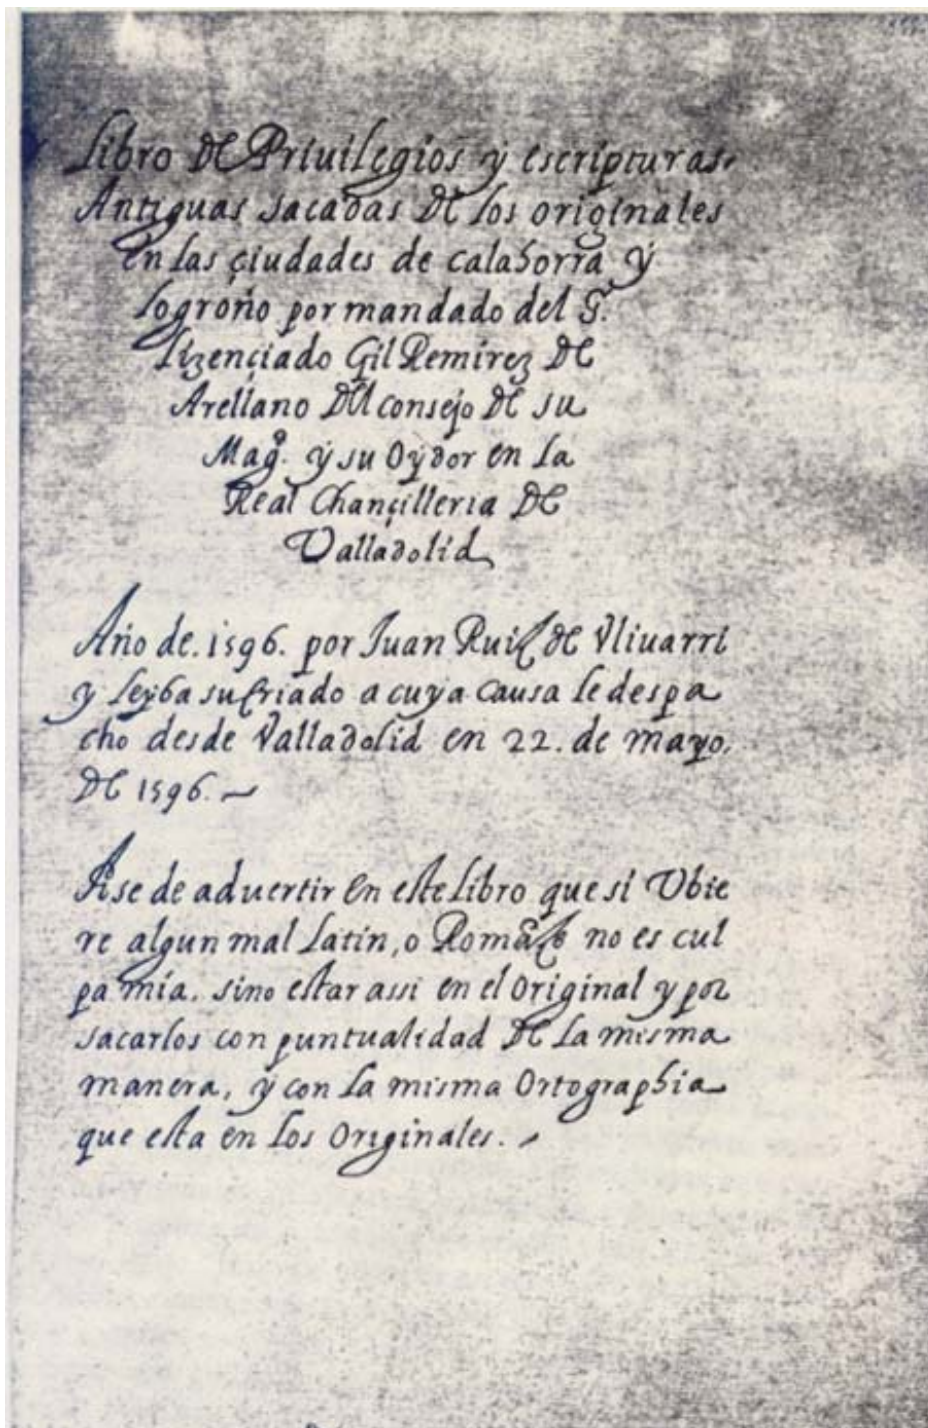 Libro de Priuilegios y escripturas
Antiguas sacadas de los originales
en las çiudades de calahorra y
logroño por mandado del S.ᵒʳ
Lizençiado Gil Remirez de
Arellano del consejo de su
Magᵈ. y su Oydor en la
Real Chançilleria de
Valladolid
Año de. 1596. por Juan Ruiz de Vliuarri
y leyba su criado a cuya causa le despa
cho desde Valladolid en 22. de mayo.
de 1596.
Ase de aduertir en este libro que si Vbie
re algun mal latin, o Romāze no es cul
pa mia. sino estar assi en el original y por
sacarlos con puntualidad de la misma
manera, y con la misma Ortographia
que esta en los Originales.